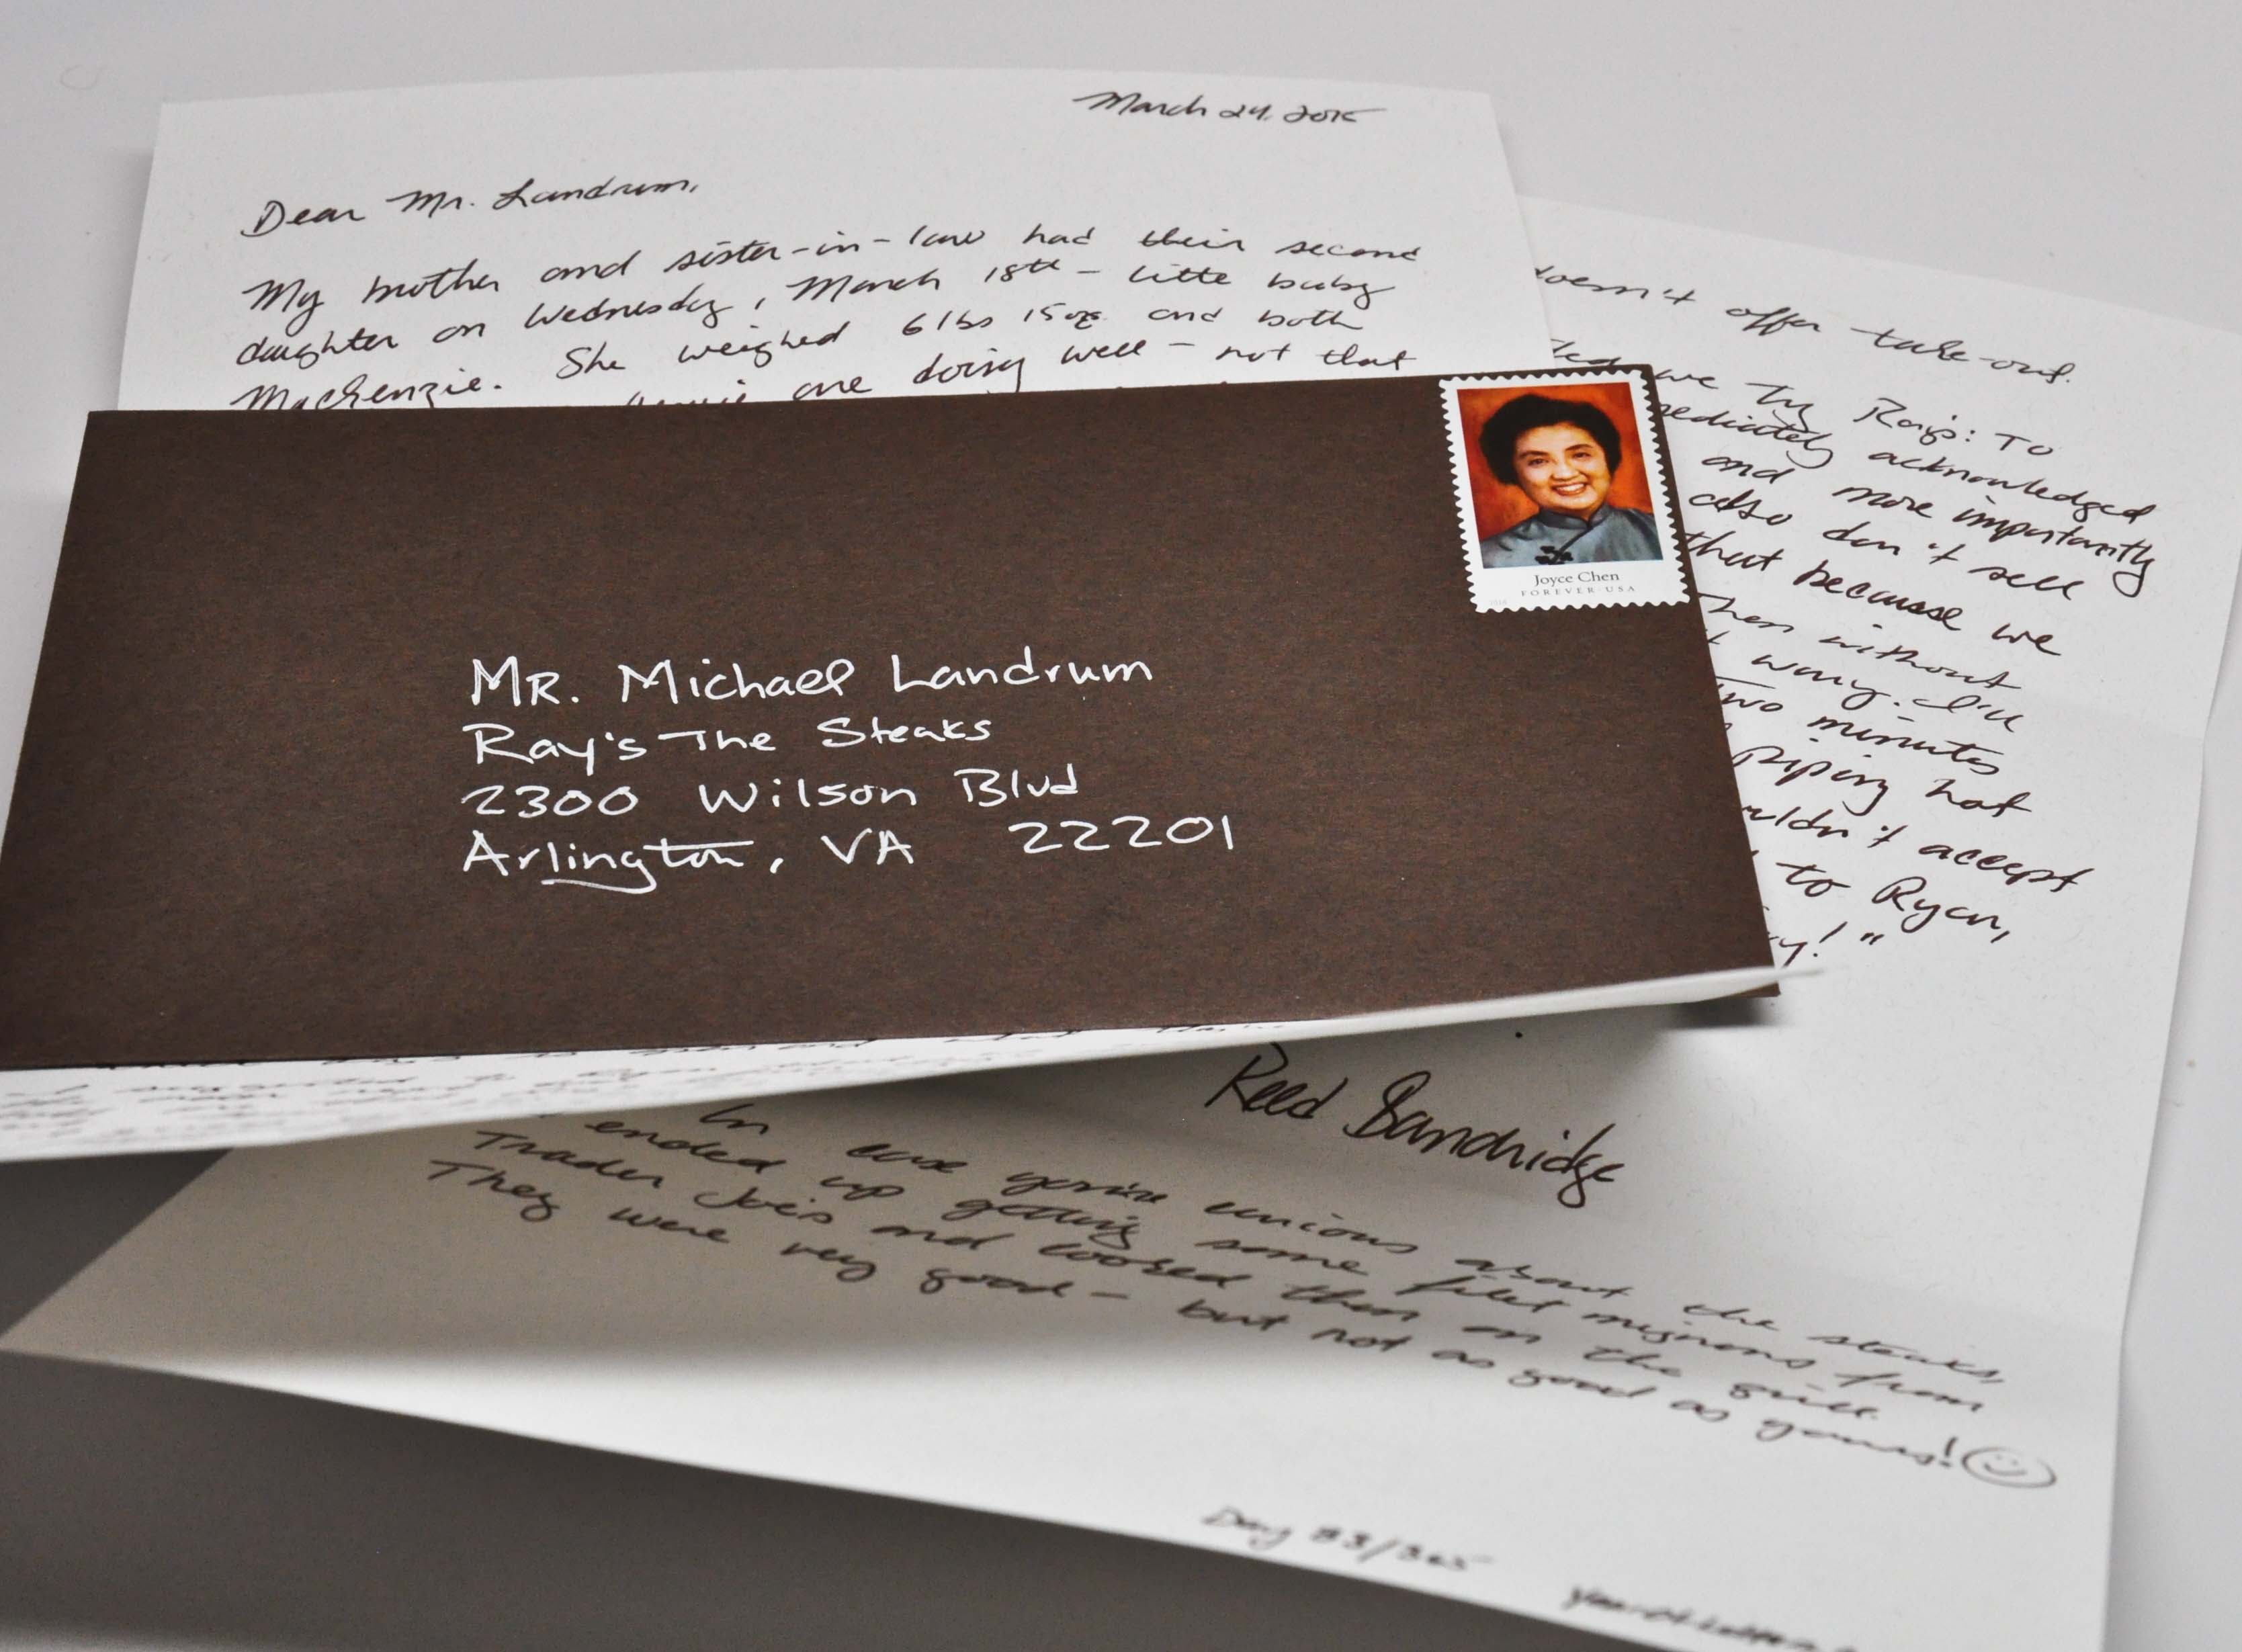 March 24, 2015
Dear Mr. Landrum,
My brother and sister-in-law had their second
daughter on Wednesday, March 18th - little baby
Mackenzie. She weighed 6 lbs 15 oz. and both
are doing well - not that
Joyce Chen
FOREVER USA
MR. Michael Landrum
Ray's The Steaks
2300 Wilson Blvd
Arlington, VA 22201
doesn't offer take-out.
we try Ray's: To
acknowledged
and more importantly
also don't sell
that because we
then without
wrong. I'll
two minutes
piping hot
accept
to Ryan,
Reed Sandridge
In case you're curious about the steaks,
ended up getting some filet mignons from
Trader Joe's and cooked them on the grill.
They were very good - but not as good as yours!
Day 83/365